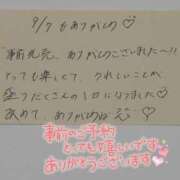 9/7 もありがとう
"事前完売" ありがとうございました〜!!
とっても楽しくて、うれしいことが、
盛りだくさんの1日になりました♡
改めて、ありがとう
事前ご予約
とっても嬉しいです
ありがとうございます